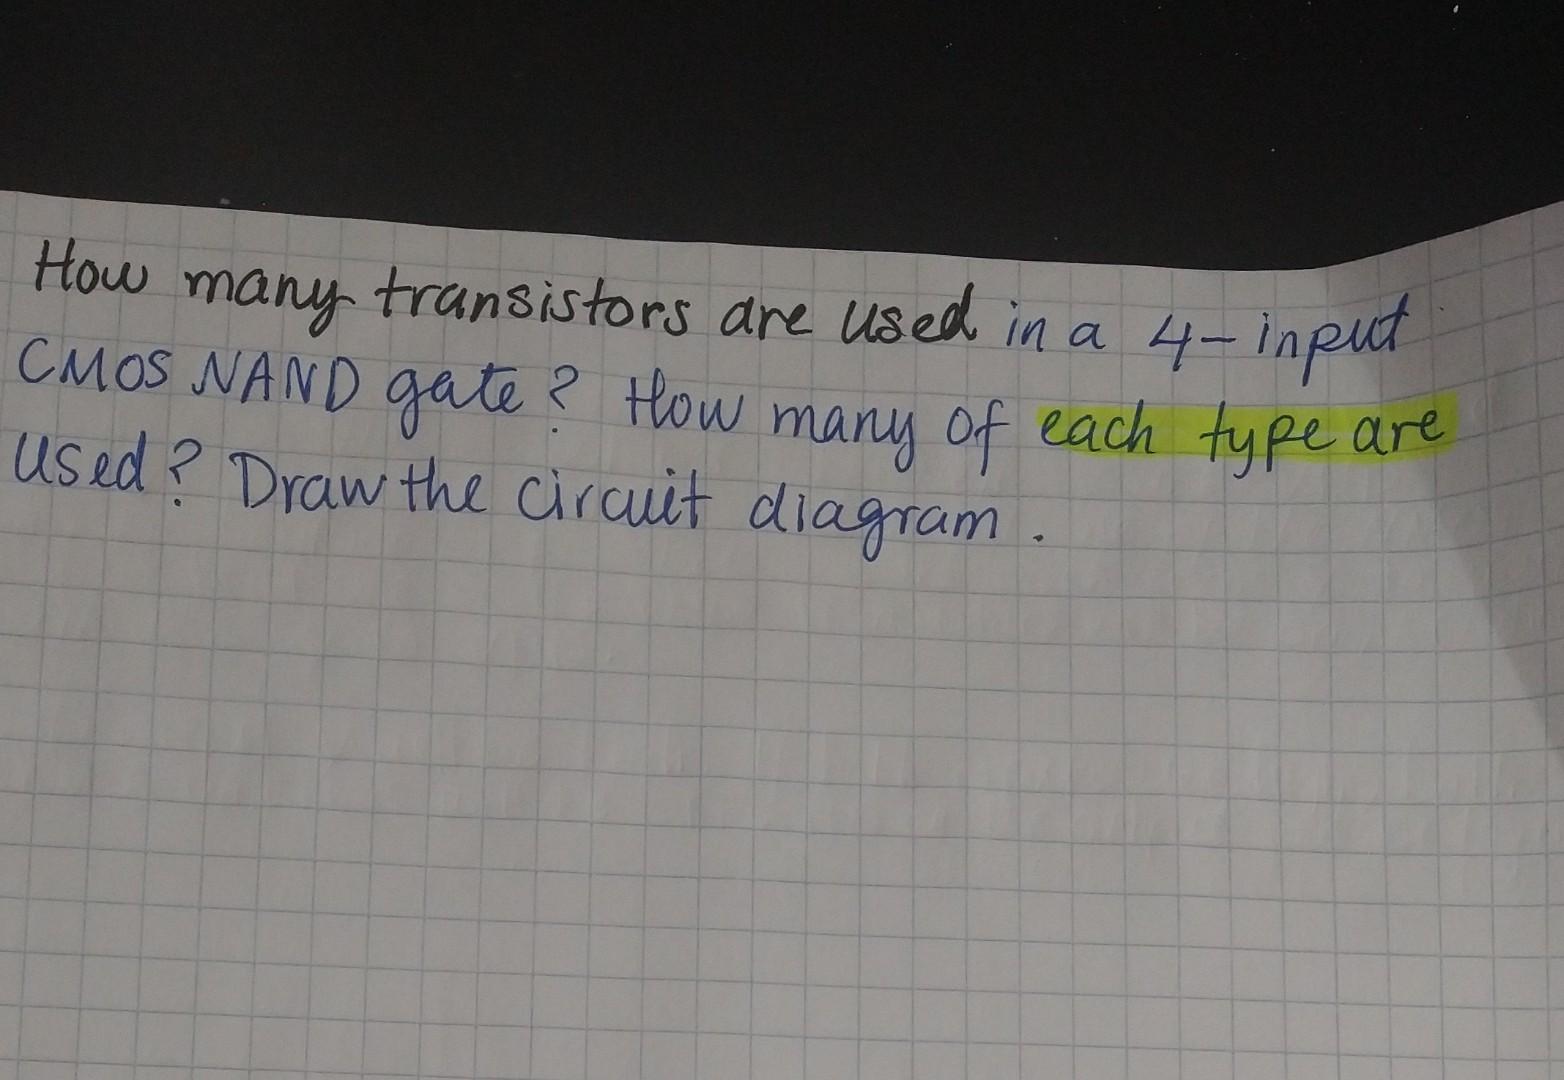 How many transistors are used in a 4-input
CMOS NAND gate? How many of each type are
used? Draw the circuit diagram.